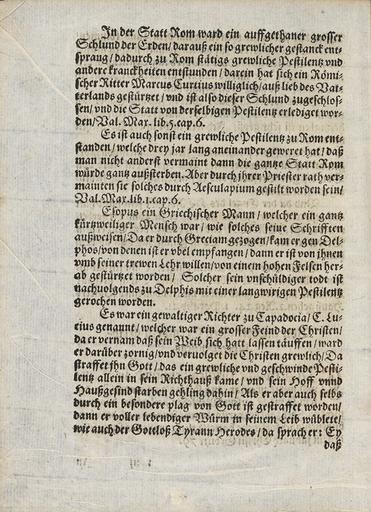 In der Statt Rom ward ein auffgethaner grosser
Schlund der Erden/ darauß ein so grewlicher gestanck ent-
sprang/ dadurch zu Rom stätigs grewliche Pestilentz vnd
andere kranckheiten entstunden/ darein hat sich ein Römi-
scher Ritter Marcus Curtius williglich/ auß lieb des Vat-
terlands gestürtzet/ vnd ist also dieser Schlund zugeschlos-
sen/ vnd die Statt von derselbigen Pestilentz erlediget wor-
den/ Val. Max. lib. 5. cap. 6.
Es ist auch sonst ein grewliche Pestilentz zu Rom ent-
standen/ welche drey jar lang aneinander geweret hat/ daß
man nicht anderst vermaint dann die gantze Statt Rom
würde gantz außsterben. Aber durch jhrer Priester rath ver-
mainten sie solches durch Aesculapium gestilt worden sein/
Val. Max. lib. 1. cap. 6.
Esopus ein Griechischer Mann/ welcher ein gantz
kürtzweiliger Mensch war/ wie solches seine Schrifften
außweisen/ Da er durch Greciam gezogen/ kam er gen Del-
phos/ von denen ist er vbel empfangen/ dann er ist von jhnen
vmb seiner trewen Lehr willen/ von einem hohen Felsen her-
ab gestürtzet worden/ Solcher sein vnschüldiger todt ist
nachuolgends zu Delphis mit einer langwirigen Pestilentz
gerochen worden.
Es war ein gewaltiger Richter zu Capadocia/ C. Lu-
cius genannt/ welcher war ein grosser Feind der Christen/
da er vernam daß sein Weib sich hatt lassen täuffen/ ward
er darüber zornig/ vnd veruolget die Christen grewlich/ Da
straffet jhn Gott/ das ein grewliche vnd geschwinde Pesti-
lentz allein in sein Richthauß kame/ vnd sein Hoff vnnd
Haußgesind starben gehling dahin/ Als er aber auch selbs
durch ein besondere plag von Gott ist gestraffet worden/
dann er voller lebendiger Würm in seinem Leib wüblete/
wie auch der Gottloß Tyrann Herodes/ da sprach er: Ey
daß